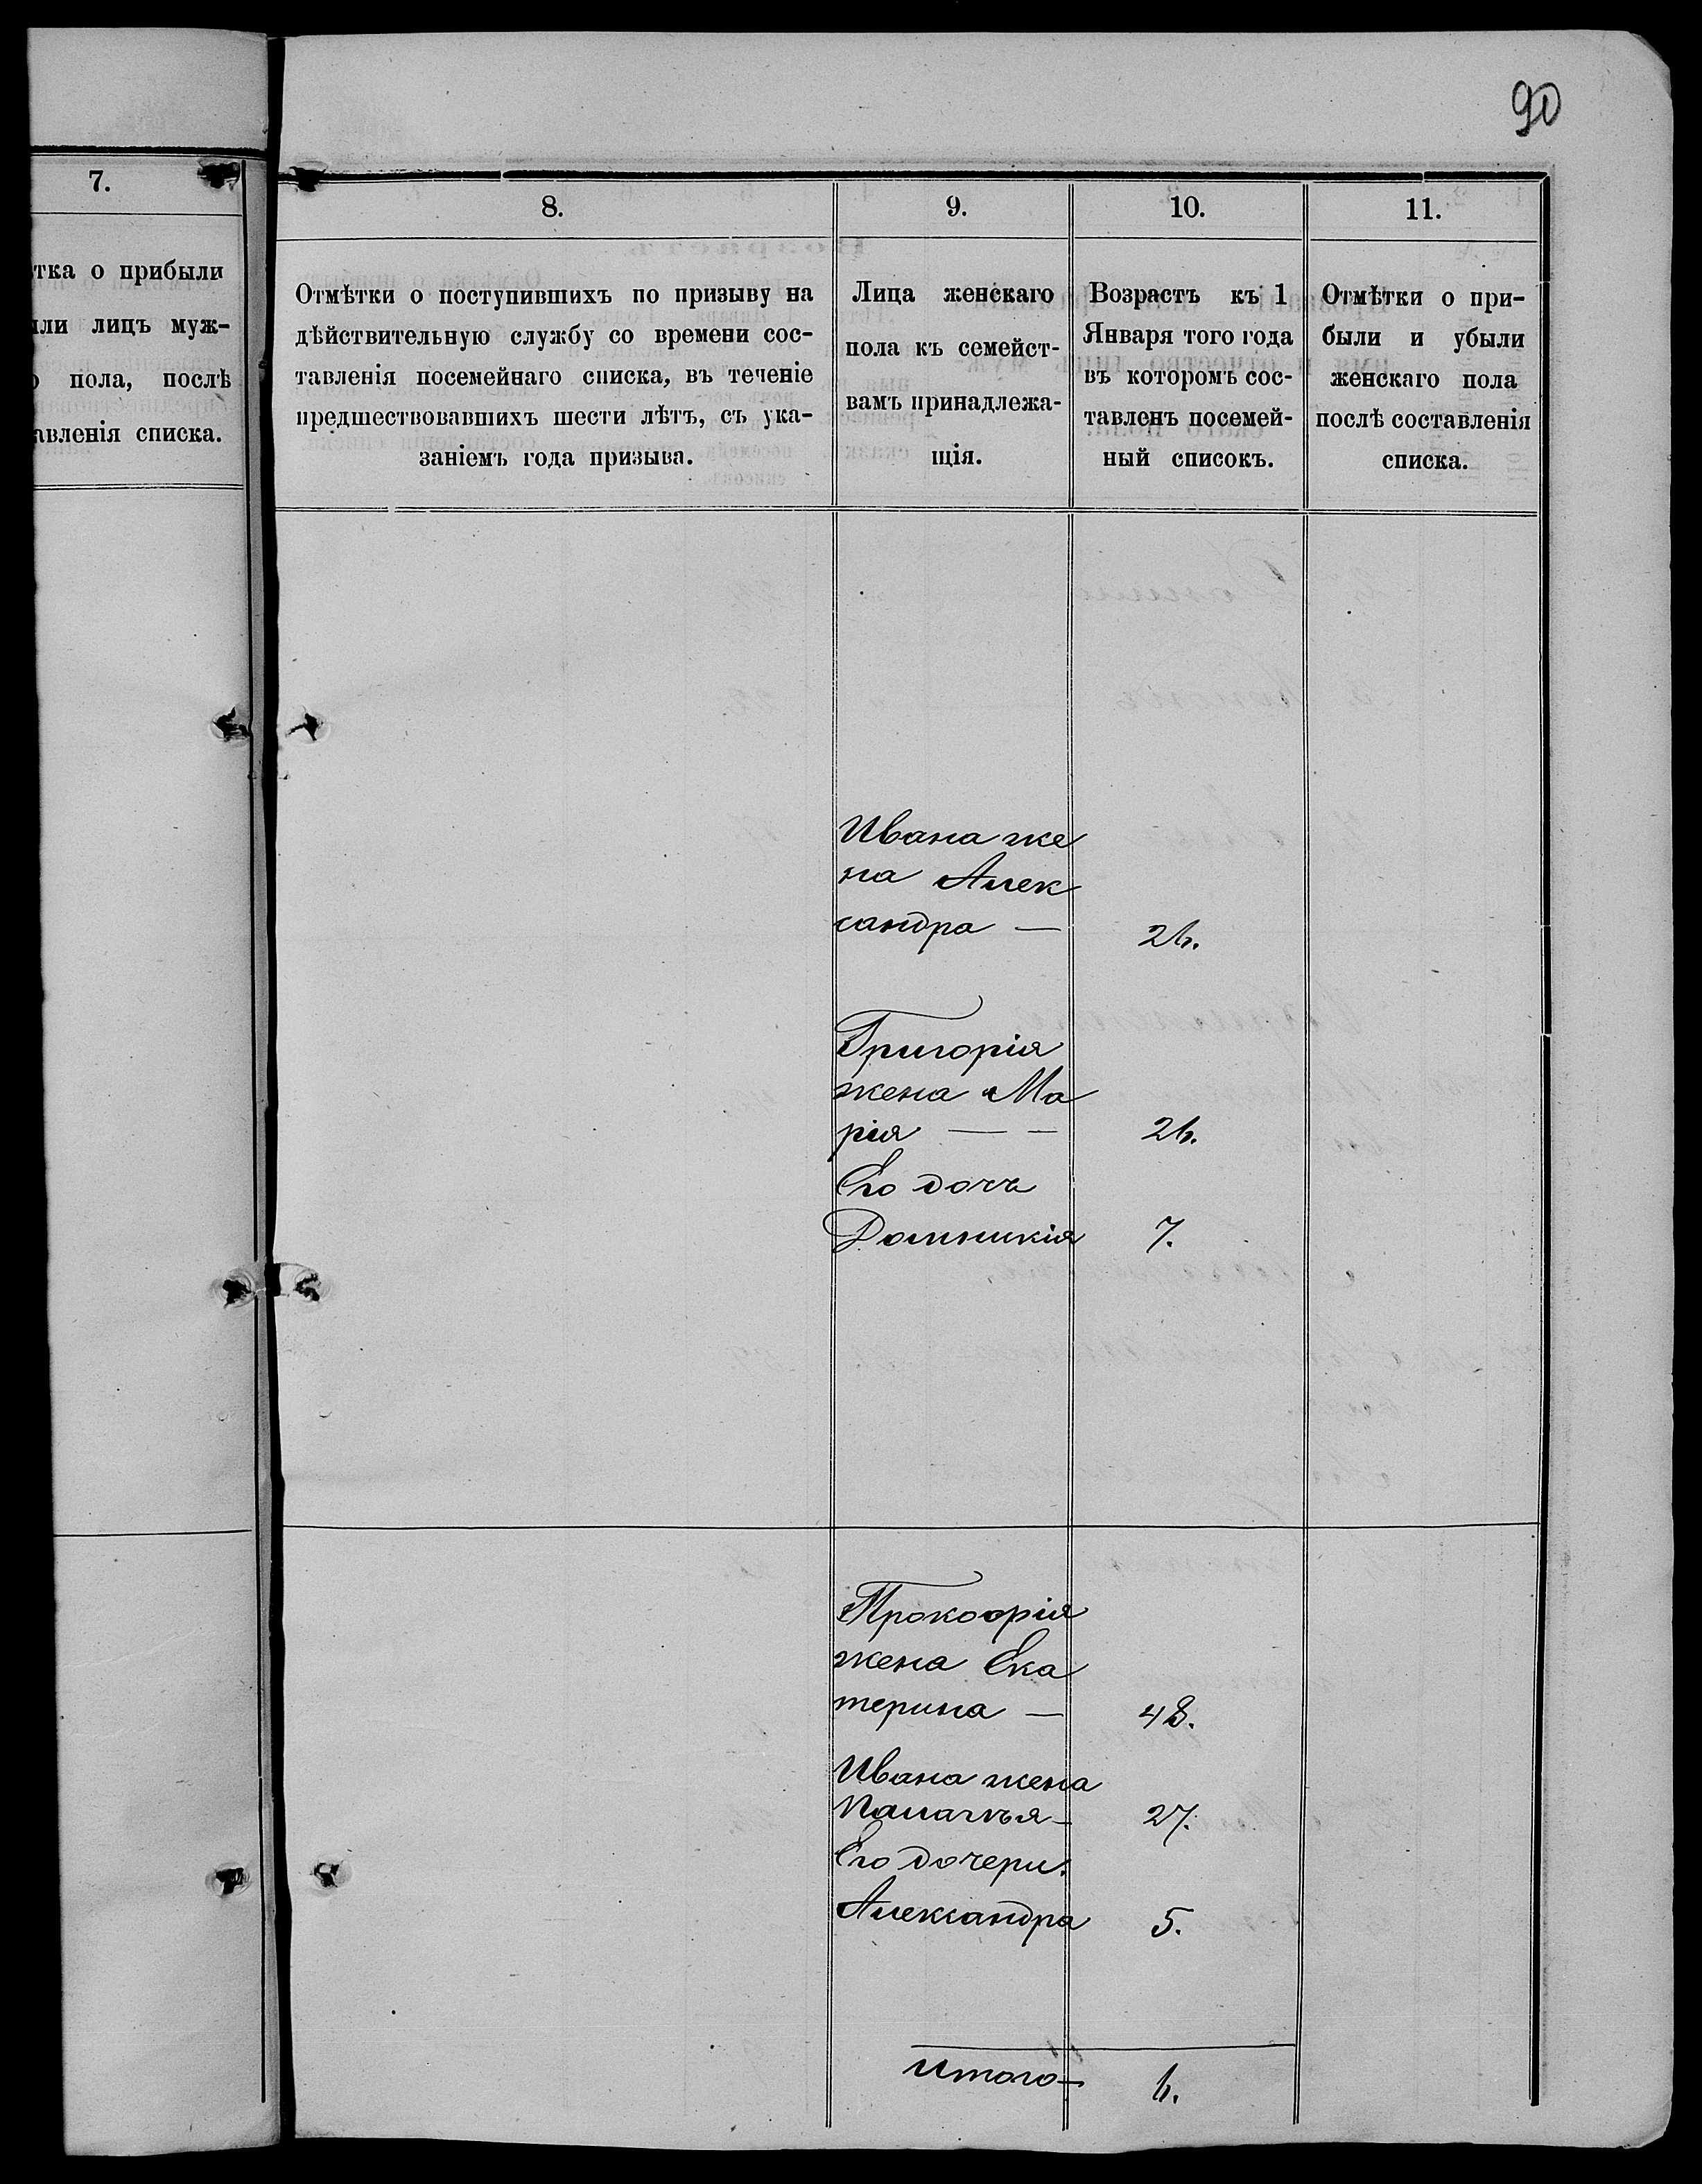 90
7.
тка о прибыли
ли лицъ муж-
пола, послѣ
авленія списка.
8.
Отмѣтки о поступившихъ по призыву на
дѣйствительную службу со времени сос-
тавленія посемейнаго списка, въ теченіе
предшествовавшихъ шести лѣтъ, съ ука-
заніемъ года призыва.
9.
Лица женскаго
пола къ семейст-
вамъ принадлежа-
щія.
10.
Возрастъ къ 1
Января того года
въ которомъ сос-
тавленъ посемей-
ный списокъ.
11.
Отмѣтки о при-
были и убыли
женскаго пола
послѣ составленія
списка.
Ивана же
на Алек
сандра — 26.
Григорія
жена Ма
рія — — 26.
Его дочь
Домникія 7.
Прокофія
жена Ека
терина — 48.
Ивана жена
Палагѣя — 27.
Его дочери:
Александра 5.
Итого — 6.